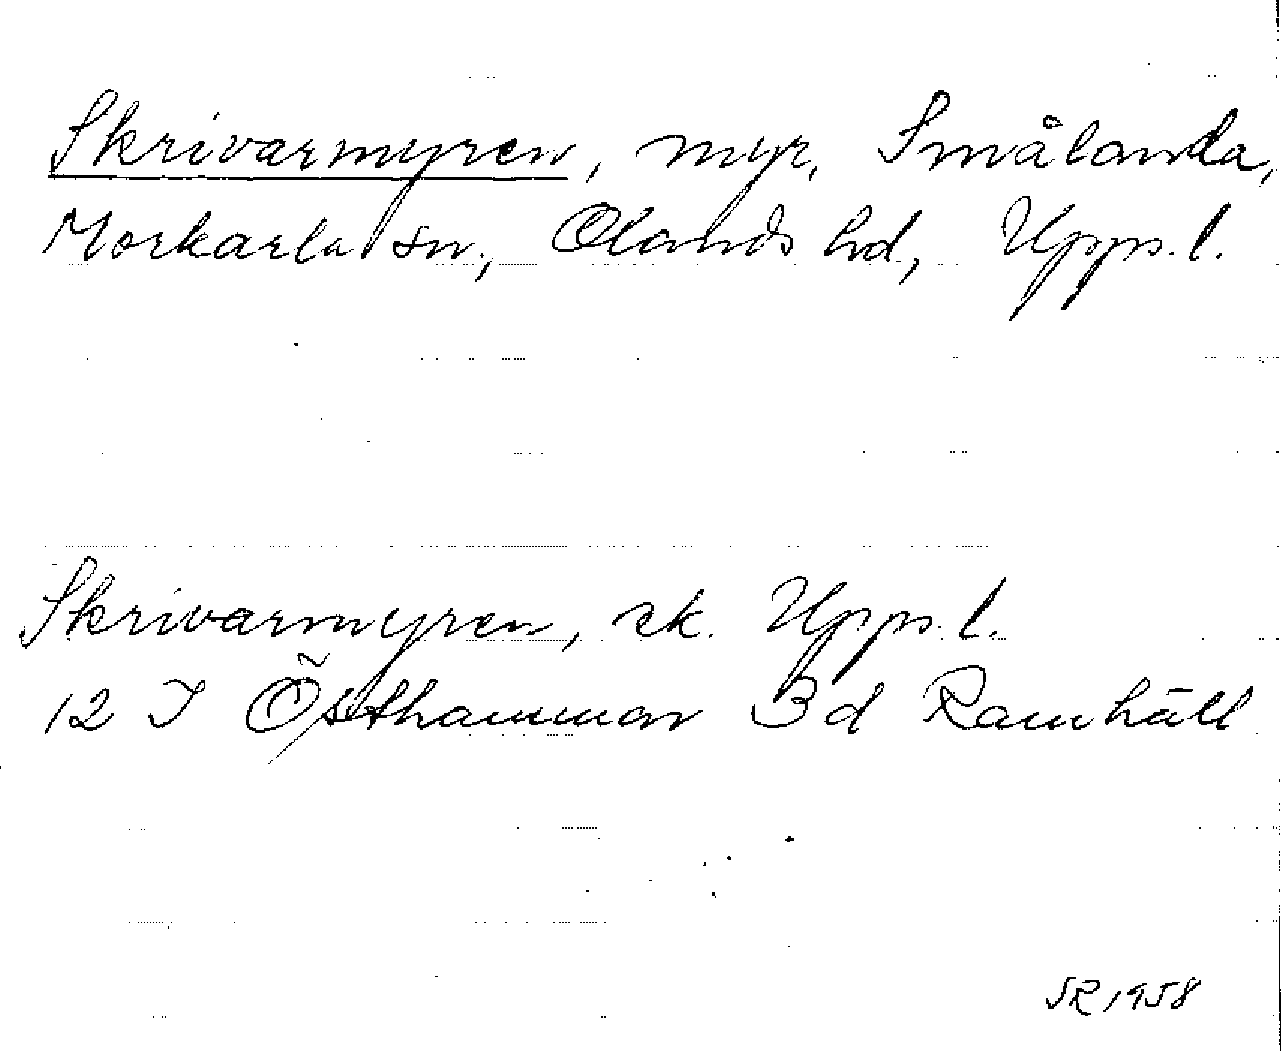 Skrivarmyren, myr, Smålanda,
Morkarla sn., Olands hd, Upps. l.
Skrivarmyren, ek. Upps. l.
12 I Östhammar 3 d Ramhäll
SR 1958